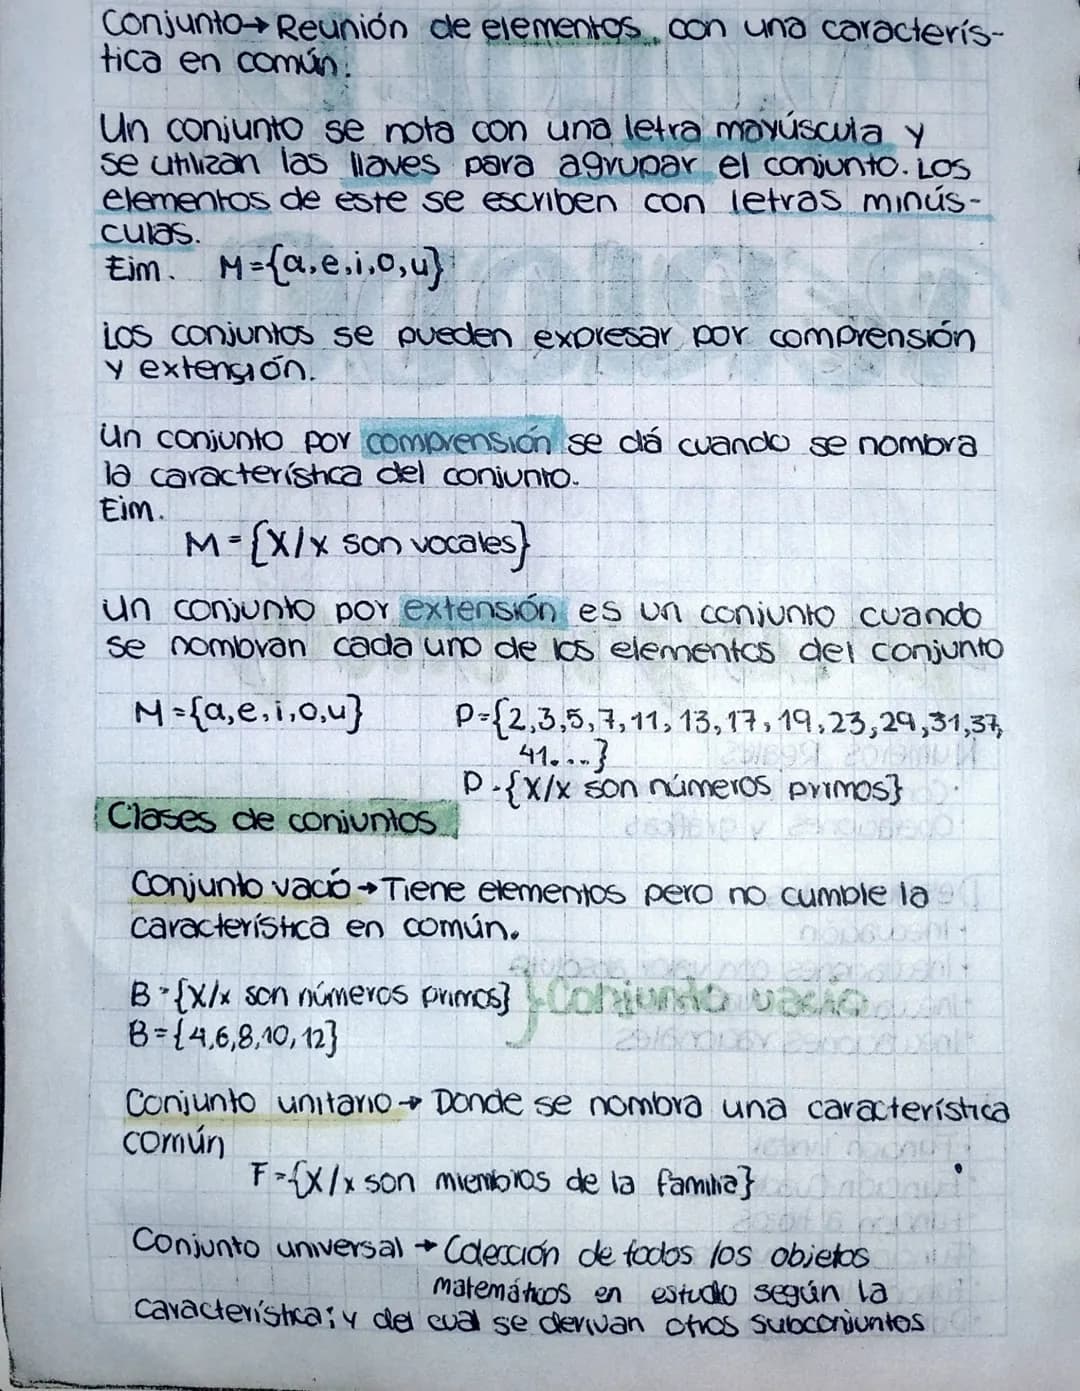 Conjunto→ Reunión de elementos con una caracterís-
tica en común.
Un conjunto se nota con una letra mayúscula y
se utilizan las llaves para agrupar el conjunto. Los
elementos de este se escriben con letras minús-
culas.
Ejm. M={a,e,i,o,u}
Los conjuntos se pueden expresar por comprensión
y extensión.
Un conjunto por comprensión se dá cuando se nombra
la característica del conjunto.
Ejm.
M={X/x son vocales}
Un conjunto por extensión es un conjunto cuando
se nombran cada uno de los elementos del conjunto
M={a,e,i,o,u} P={2,3,5,7,11,13,17,19,23,29,31,37,
41....}
P={X/x son números primos}
Clases de conjuntos
Conjunto vacío→Tiene elementos pero no cumple la
característica en común.
B={X/x son números primos} } Conjunto vacío
B={4,6,8,10,12}
Conjunto unitario→ Donde se nombra una característica
común
F={X/x son miembros de la familia}
Conjunto universal → Colección de todos los objetos
matemáticos en estudio según la
característica; y del cual se derivan otros subconjuntos